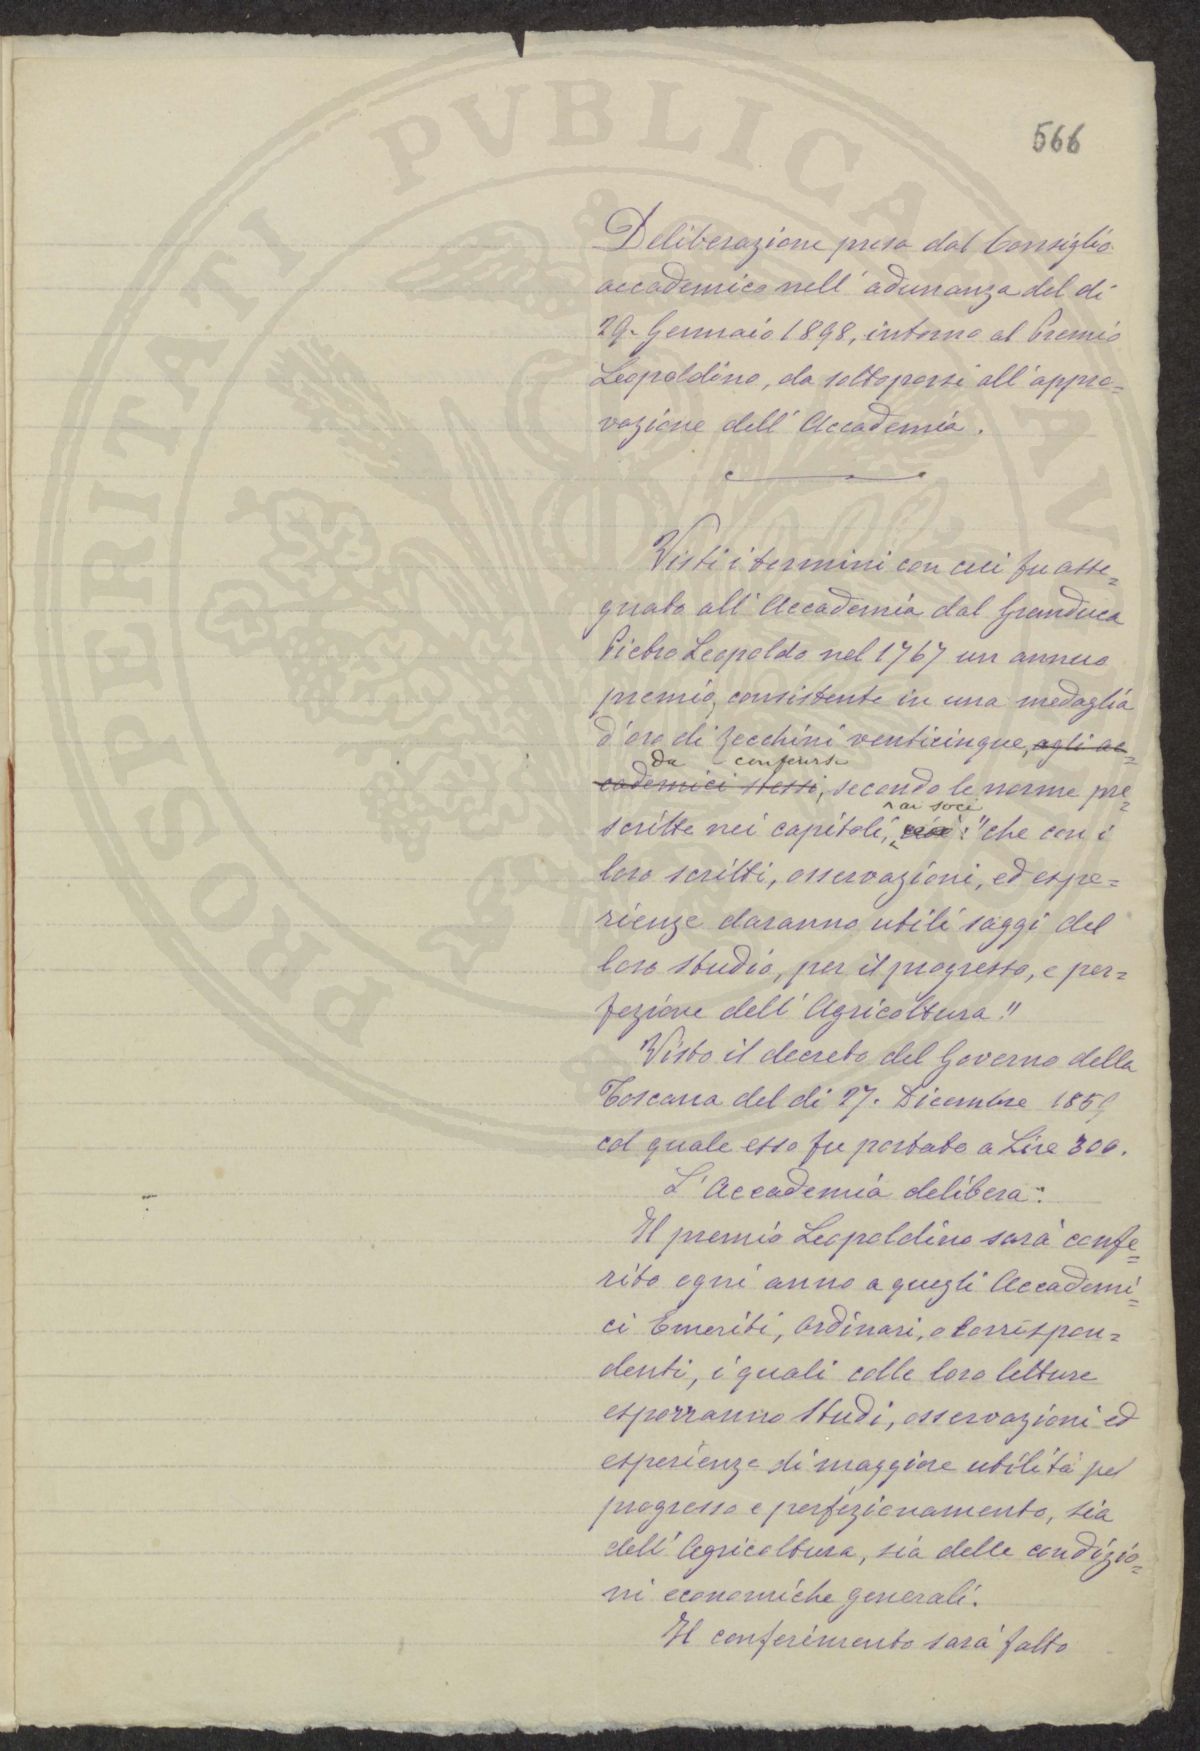 PROSPERITATI PUBLICAE AU
566
Deliberazione presa dal Consiglio
accademico nell'adunanza del dì
29. Gennaio 1898, intorno al Premio
Leopoldino, da sottoporsi all'appro=
vazione dell'Accademia.
Visti i termini con cui fu asse=
gnato all'Accademia dal Granduca
Pietro Leopoldo nel 1767 un annuo
premio, consistente in una medaglia
d'oro di zecchini venticinque, agli ac=
da conferirsi
cademici stessi, secondo le norme pre=
ai soci
scritte nei capitoli, cioè: "che con i
loro scritti, osservazioni, ed espe=
rienze daranno utili saggi del
loro studio, per il progresso, e per=
fezione dell'Agricoltura."
Visto il decreto del Governo della
Toscana del dì 27. Dicembre 1859
col quale esso fu portato a Lire 300.
L'Accademia delibera:
Il premio Leopoldino sarà confe=
rito ogni anno a quegli Accademi=
ci Emeriti, Ordinari, o Corrispon=
denti, i quali colle loro letture
esporranno studi, osservazioni ed
esperienze di maggiore utilità pel
progresso e perfezionamento, sia
dell'Agricoltura, sia delle condizio=
ni economiche generali.
Il conferimento sarà fatto